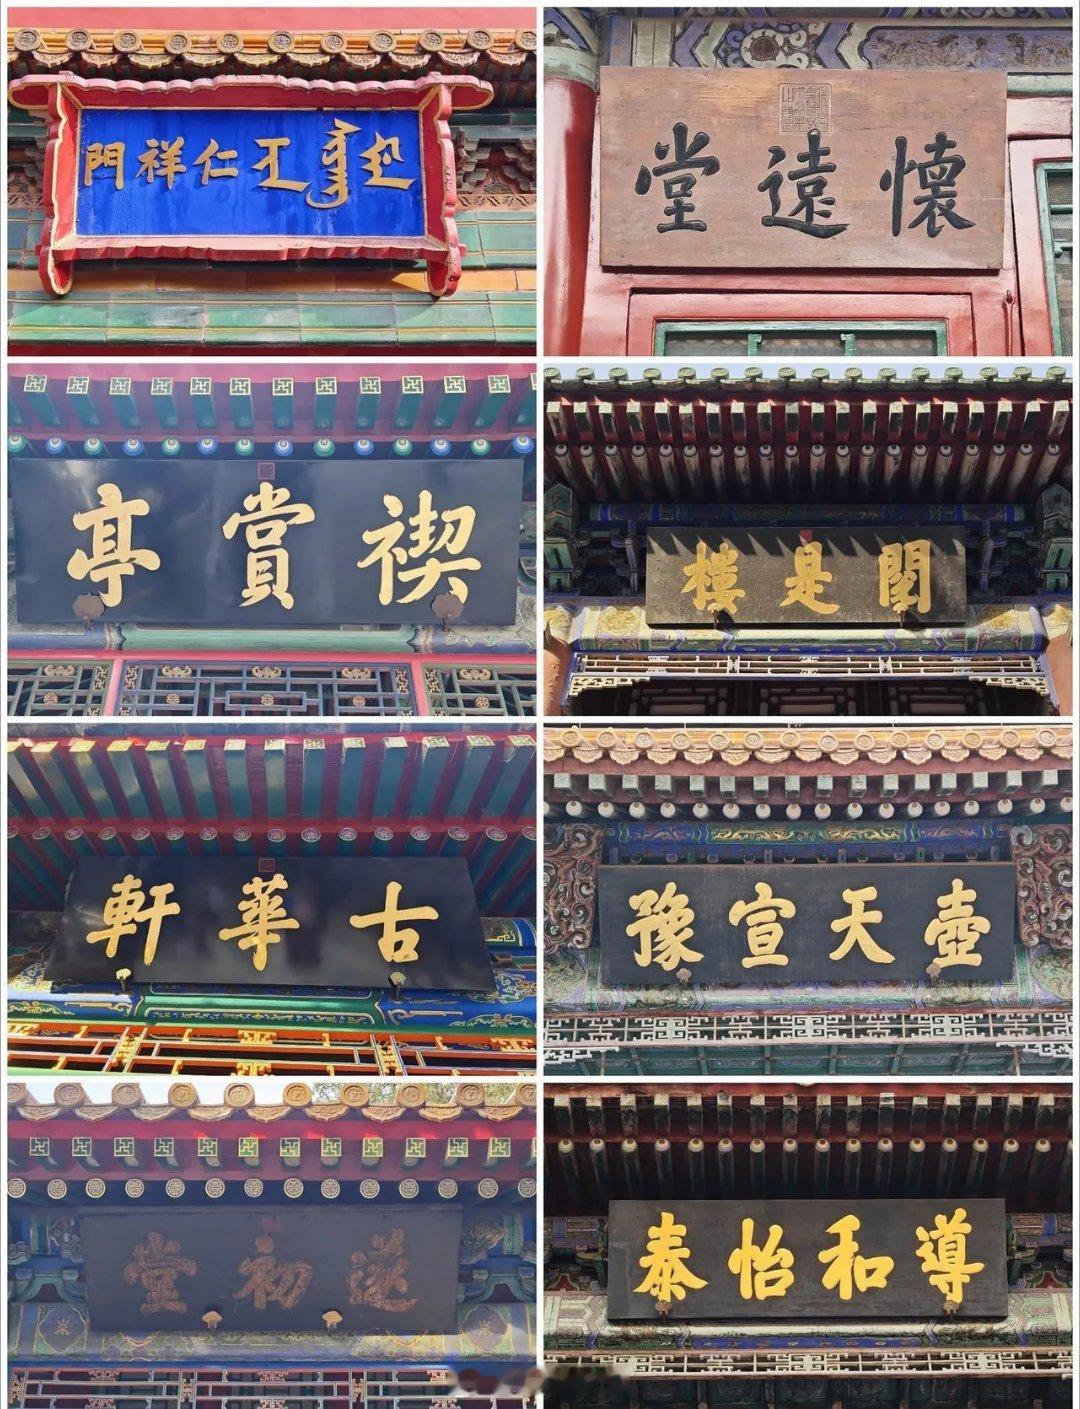 仁祥門
懷遠堂
禊賞亭
閱是樓
古華軒
壺天宣豫
遂初堂
導和怡泰